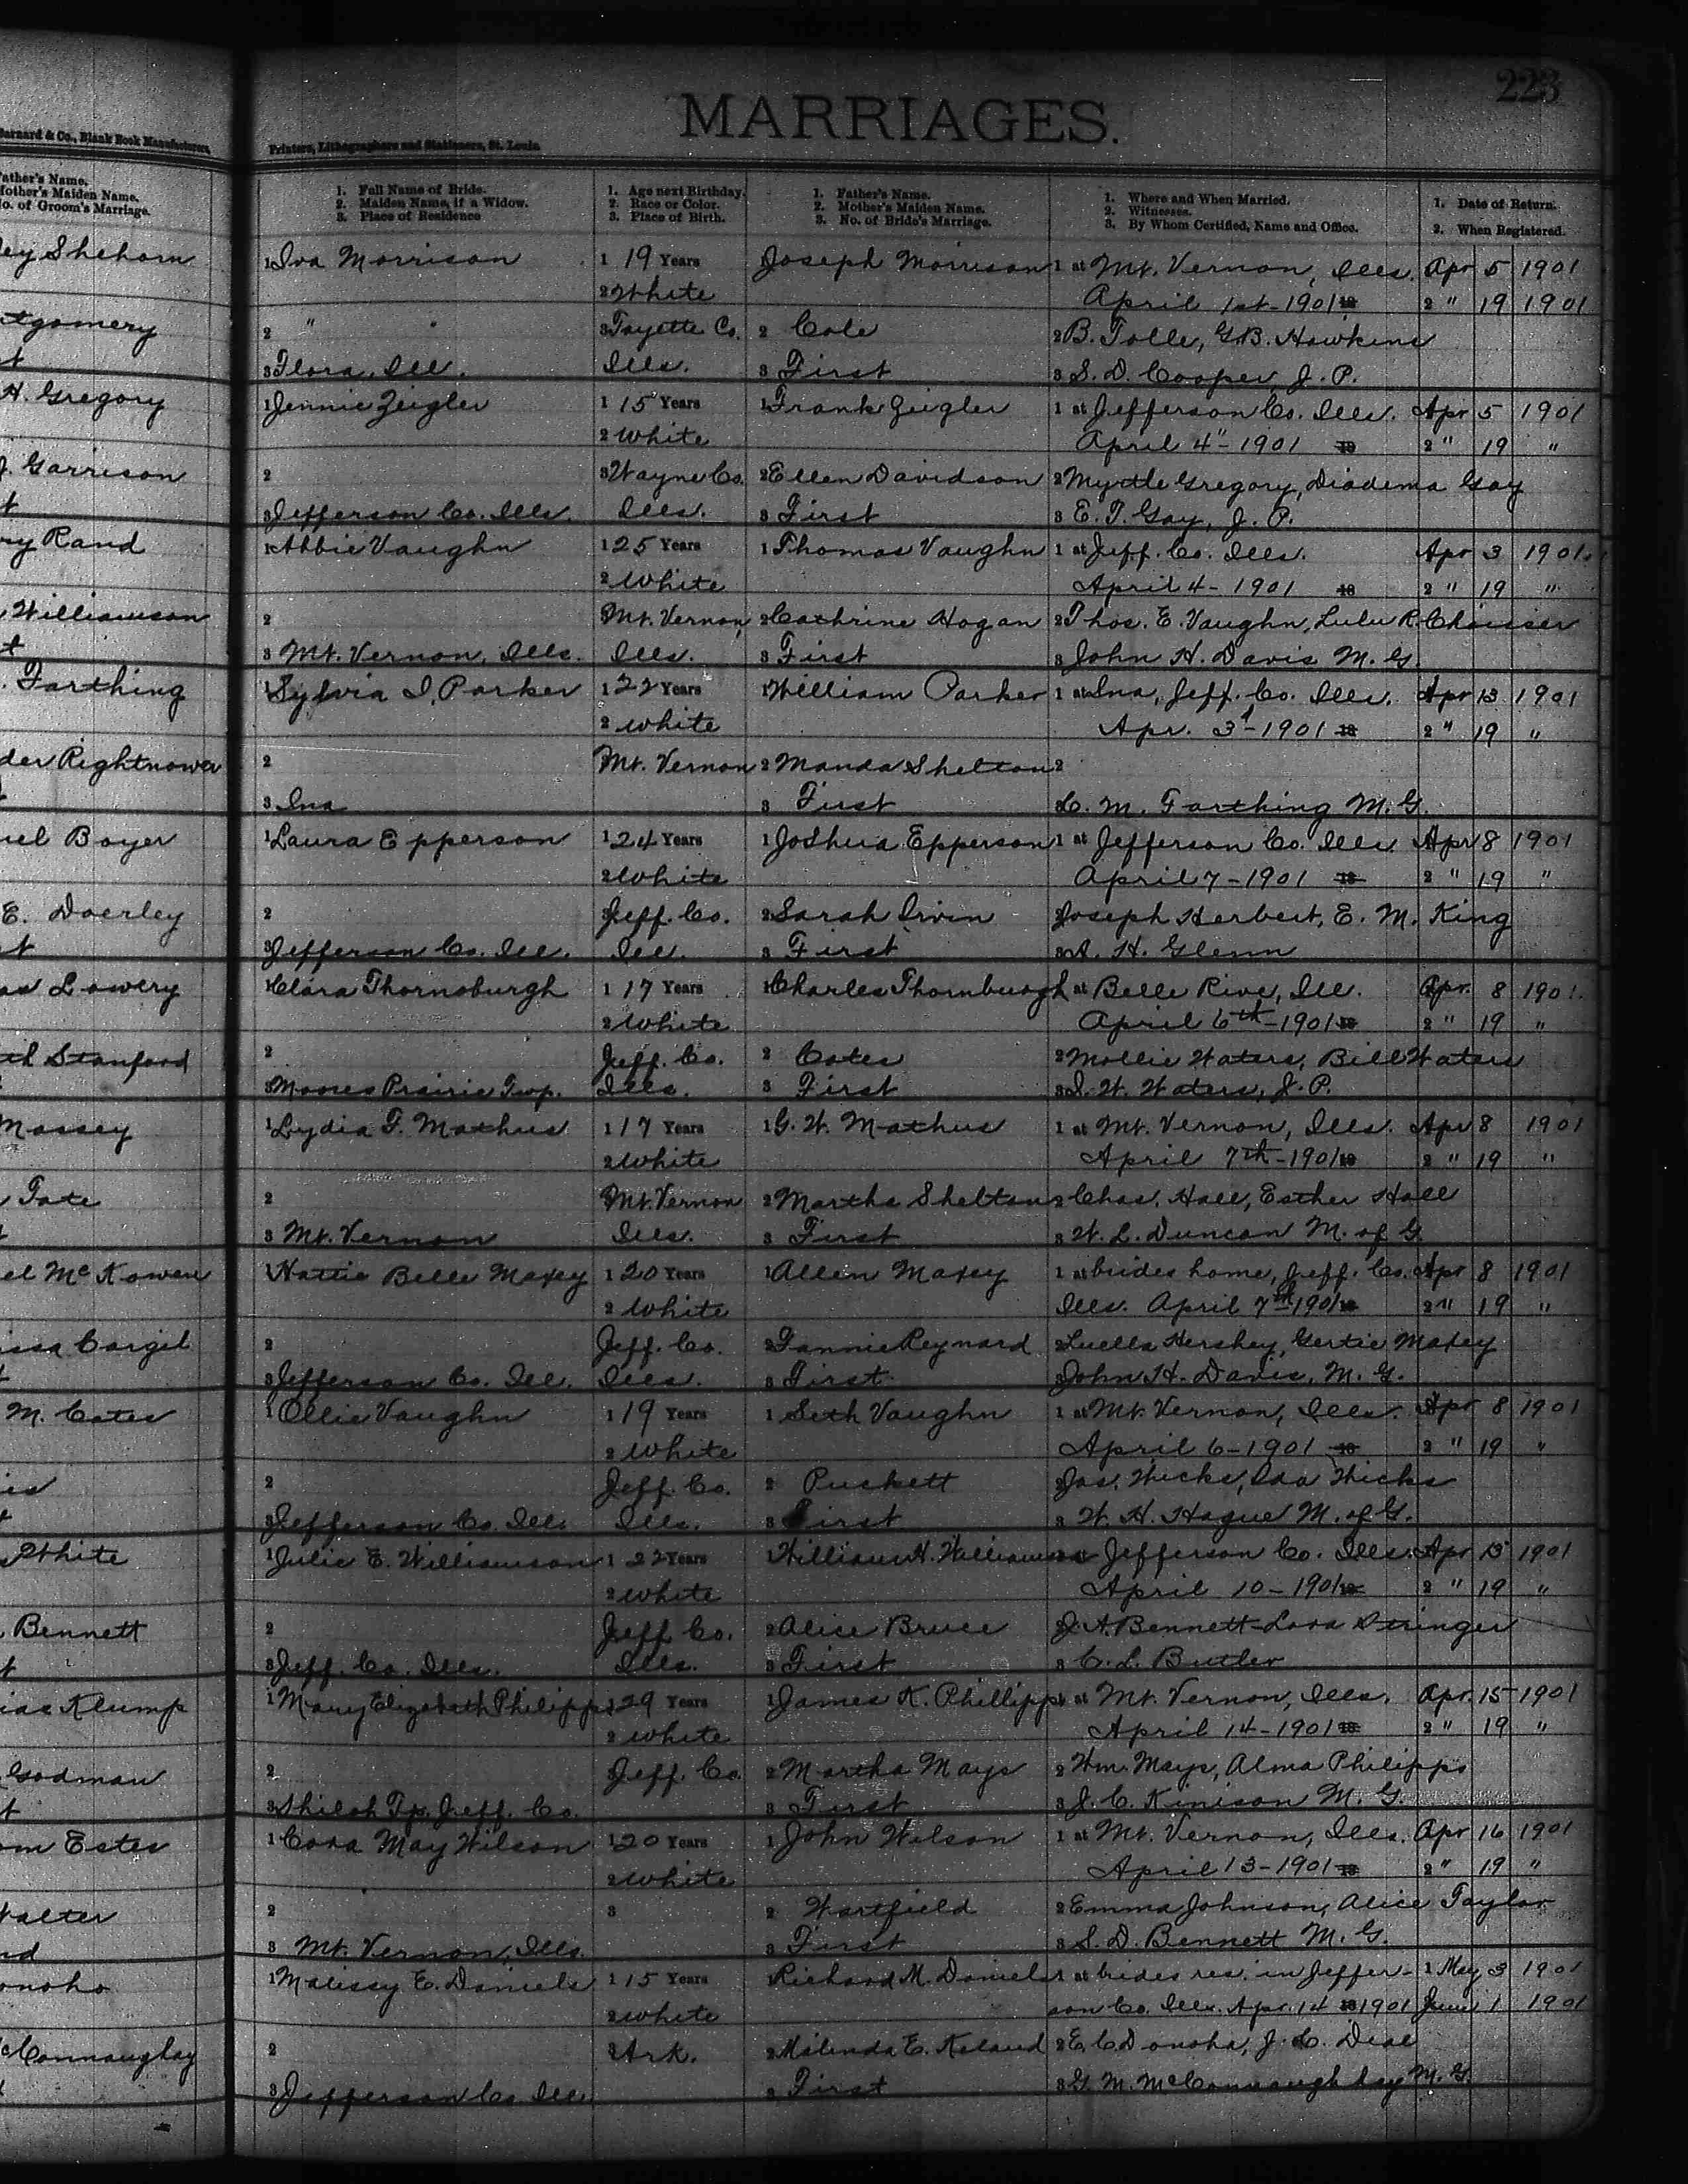 223
MARRIAGES.
Barnard & Co., Blank Book Manufacturers,
Printers, Lithographers and Stationers, St. Louis.
Father's Name,
Mother's Maiden Name.
No. of Groom's Marriage.
1. Full Name of Bride.
2. Maiden Name, if a Widow.
3. Place of Residence
1. Age next Birthday.
2. Race or Color.
3. Place of Birth.
1. Father's Name.
2. Mother's Maiden Name.
3. No. of Bride's Marriage.
1. Where and When Married.
2. Witnesses.
3. By Whom Certified, Name and Office.
1. Date of Return.
2. When Registered.
ey Shehorn 1 Iva Morrison 1 19 Years Joseph Morrison 1 at Mt. Vernon, Ills. Apr 5 1901
2 White April 1st - 1901 18 2 " 19 1901
tgomery 2 " 3 Fayette Co. 2 Cole 2 B. Tolle, G.B. Hawkins
t 3 Flora, Ill. Ills. 3 First 3 S. D. Cooper, J. P.
H. Gregory 1 Jennie Zeigler 1 15 Years 1 Frank Zeigler 1 at Jefferson Co. Ills. Apr 5 1901
2 White April 4" - 1901 18 2 " 19 "
J. Garrison 2 3 Wayne Co. 2 Ellen Davidson 2 Myrtle Gregory, Diadema Gay
t 3 Jefferson Co. Ills. Ills. 3 First 3 E. T. Gay, J. P.
ry Rand 1 Abbie Vaughn 1 25 Years 1 Thomas Vaughn 1 at Jeff. Co. Ills. Apr 3 1901
2 White April 4 - 1901 18 2 " 19 "
Williamson 2 3 Mt. Vernon, 2 Cathrine Hogan 2 Thos. E. Vaughn, Lulu R. Choisser
t 3 Mt. Vernon, Ills. Ills. 3 First 3 John H. Davis M. G.
. Farthing 1 Sylvia I. Parker 1 22 Years 1 William Parker 1 at Ina, Jeff. Co. Ills. Apr 13 1901
2 White Apr. 3 - 1901 18 2 " 19 "
der Rightnowar 2 3 Mt. Vernon 2 Manda Shelton 2
3 Ina 3 First 3 C. M. Farthing M. G.
uel Boyer 1 Laura Epperson 1 24 Years 1 Joshua Epperson 1 at Jefferson Co. Ills. Apr 8 1901
2 White April 7 - 1901 18 2 " 19 "
E. Doerley 2 3 Jeff. Co. 2 Sarah Irvin 2 Joseph Herbert, E. M. King
st 3 Jefferson Co. Ill. Ill. 3 First 3 A. H. Glenn
as Lowery 1 Clara Thornsburgh 1 17 Years 1 Charles Thornburgh 1 at Belle Rive, Ill. Apr. 8 1901.
2 White April 6th - 1901 18 2 " 19 "
th Stanford 2 Jeff. Co. 2 Cates 2 Mollie Waters, Bill Waters
3 Moores Prairie Twp. Ills. 3 First 3 S. W. Waters, J. P.
Massey 1 Lydia F. Mathus 1 17 Years 1 G. W. Mathus 1 at Mt. Vernon, Ills. Apr 8 1901
2 White April 7th - 1901 18 2 " 19 "
Tate 2 3 Mt. Vernon 2 Martha Shelton 2 Chas. Hall, Esther Hall
3 Mt. Vernon Ills. 3 First 3 W. L. Duncan M. of G.
el McKowen 1 Hattie Belle Maxey 1 20 Years 1 Allen Maxey 1 at brides home, Jeff. Co. Apr 8 1901
2 White Ills. April 7th 1901 18 2 " 19 "
issa Cargil 2 Jeff. Co. 2 Fannie Reynard 2 Luella Hershey, Gertie Maxey
3 Jefferson Co. Ill. Ills. 3 First 3 John H. Davis, M. G.
M. Cates 1 Ollie Vaughn 1 19 Years 1 Seth Vaughn 1 at Mt. Vernon, Ills. Apr 8 1901
2 White April 6 - 1901 18 2 " 19 "
is 2 Jeff. Co. 2 Puckett 2 Jas. Hicks, Ida Hicks
3 Jefferson Co. Ill. Ills. 3 First 3 W. H. Hague M. of G.
White 1 Julie E. Williamson 1 22 Years 1 William H. Williamson Jefferson Co. Ills. Apr 15 1901
2 White April 10 - 1901 18 2 " 19 "
Bennett 2 Jeff Co. 2 Alice Bruce 2 J. A. Bennett - Lora Stringer
t 3 Jeff. Co. Ills. Ills. 3 First 3 C. L. Butler
ias Klump 1 Mary Elizabeth Philipps 1 29 Years 1 James K. Phillipps 1 at Mt. Vernon, Ills. Apr. 15 1901
2 White April 14 - 1901 18 2 " 19 "
Godman 2 Jeff. Co. 2 Martha Mays 2 Wm. Mays, Alma Philipps
t 3 Shiloh Tp. Jeff. Co. 3 First 3 J. C. Kinison M. G.
om Estes 1 Cora May Wilson 1 20 Years 1 John Wilson 1 at Mt. Vernon, Ills. Apr 16 1901
2 White April 13 - 1901 18 2 " 19 "
Walter 2 3 2 Wartfield 2 Emma Johnson, Alice Taylor
nd 3 Mt. Vernon, Ills. 3 First 3 S. D. Bennett M. G.
onoho 1 Malissy E. Daniels 1 15 Years 1 Richard M. Daniels 1 at brides res. in Jeffer- 1 May 3 1901
2 White son Co. Ills. Apr. 14 18 1901 June 1 1901
McConnaughay 2 3 Ark. 2 Malinda E. Keland 2 E. C. Donoho, J. C. Deal
3 Jefferson Co. Ill. 3 First 3 G. M. McConnaughhay M. G.